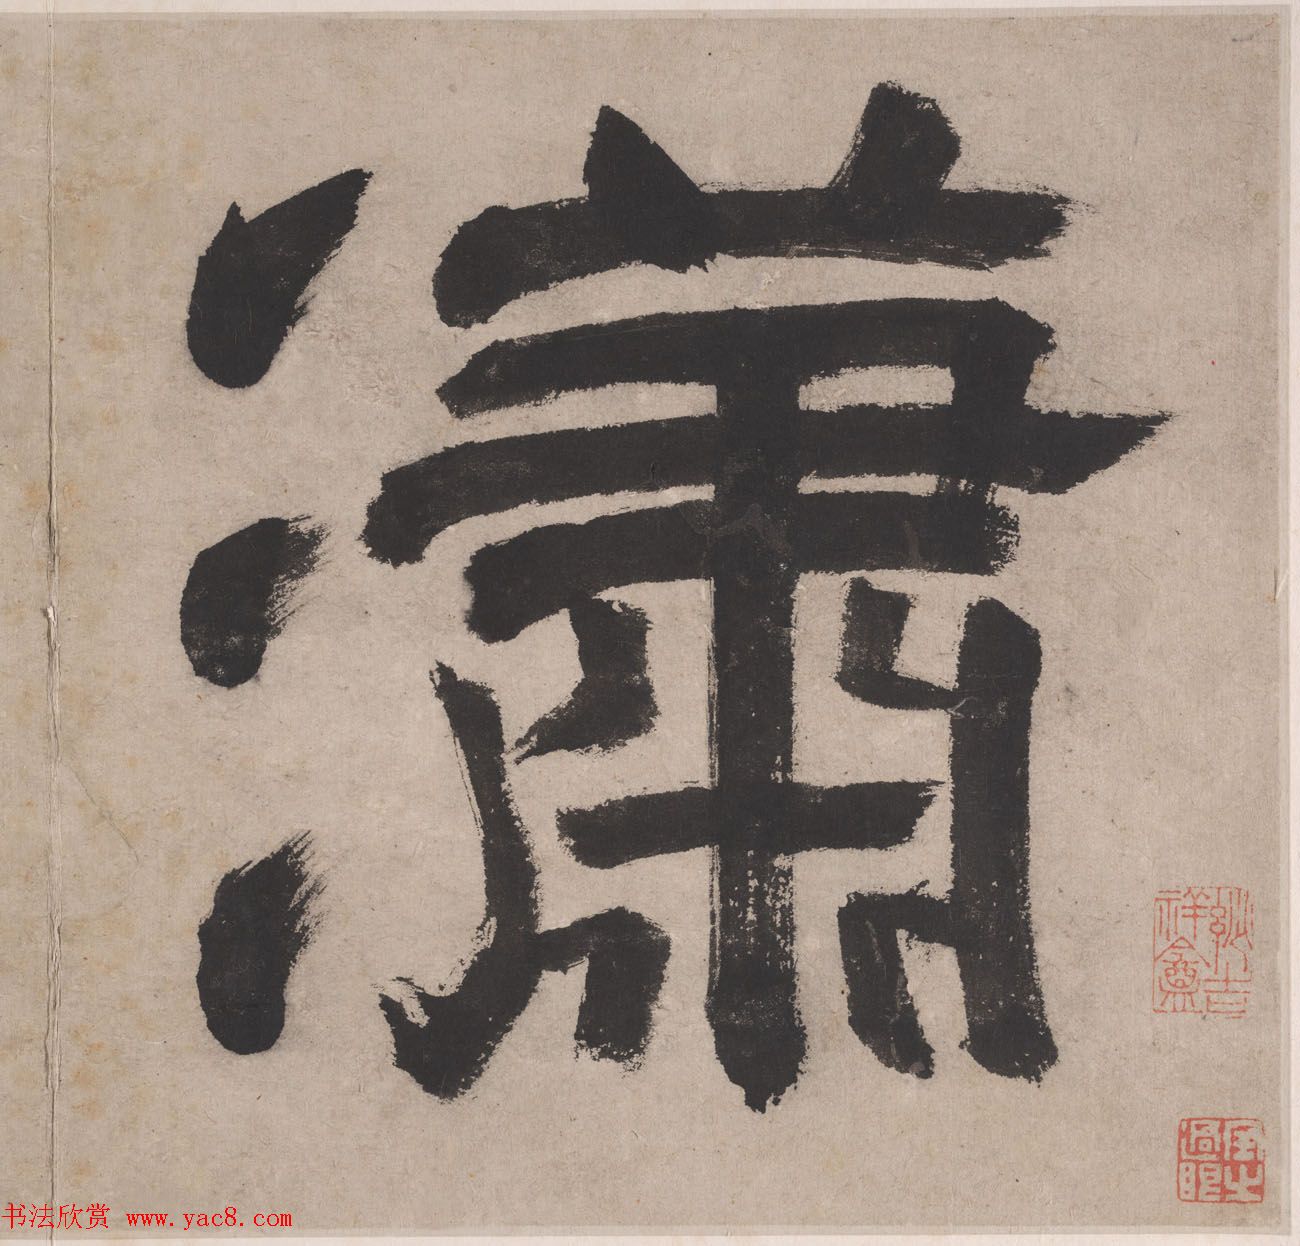 瀟
书法欣赏 www.yac8.com